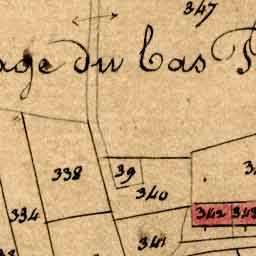 347
age du bas
338
39
340
334
342
343
341